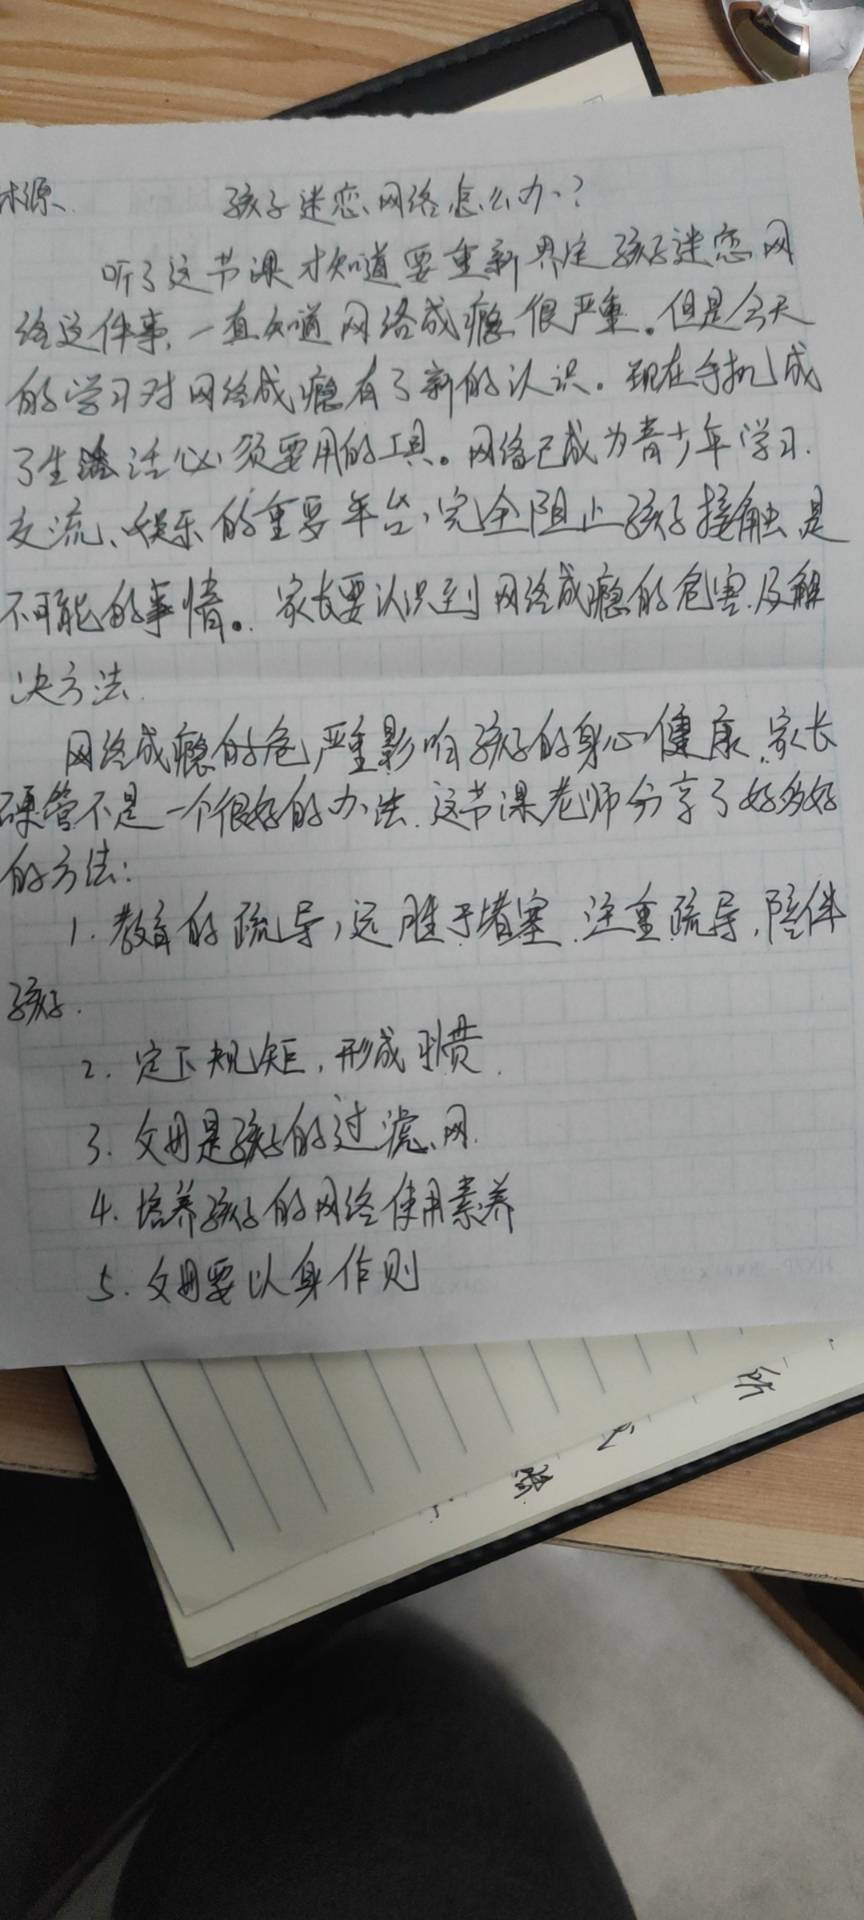 孩子迷恋网络怎么办？
听了这节课才知道要重新界定孩子迷恋网
络这件事，一直知道网络成瘾很严重。但是今天
的学习对网络成瘾有了新的认识。现在手机成
了生活必须要用的工具。网络已成为青少年学习.
交流、娱乐的重要平台，完全阻止孩子接触是
不可能的事情。家长要认识到网络成瘾的危害及解
决方法.
网络成瘾的危严重影响孩子的身心健康.家长
硬管不是一个很好的办法.这节课老师分享了好多好
的方法：
1.教育的疏导，远胜于堵塞.注重疏导，陪伴
孩子.
2.定下规矩，形成习惯.
3.父母是孩子的过滤网.
4.培养孩子的网络使用素养
5.父母要以身作则